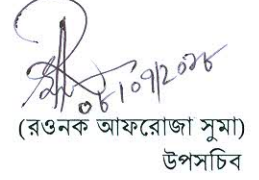 ০৮/০৭/২০১৮
(রওনক আফরোজা সুমা)
উপসচিব